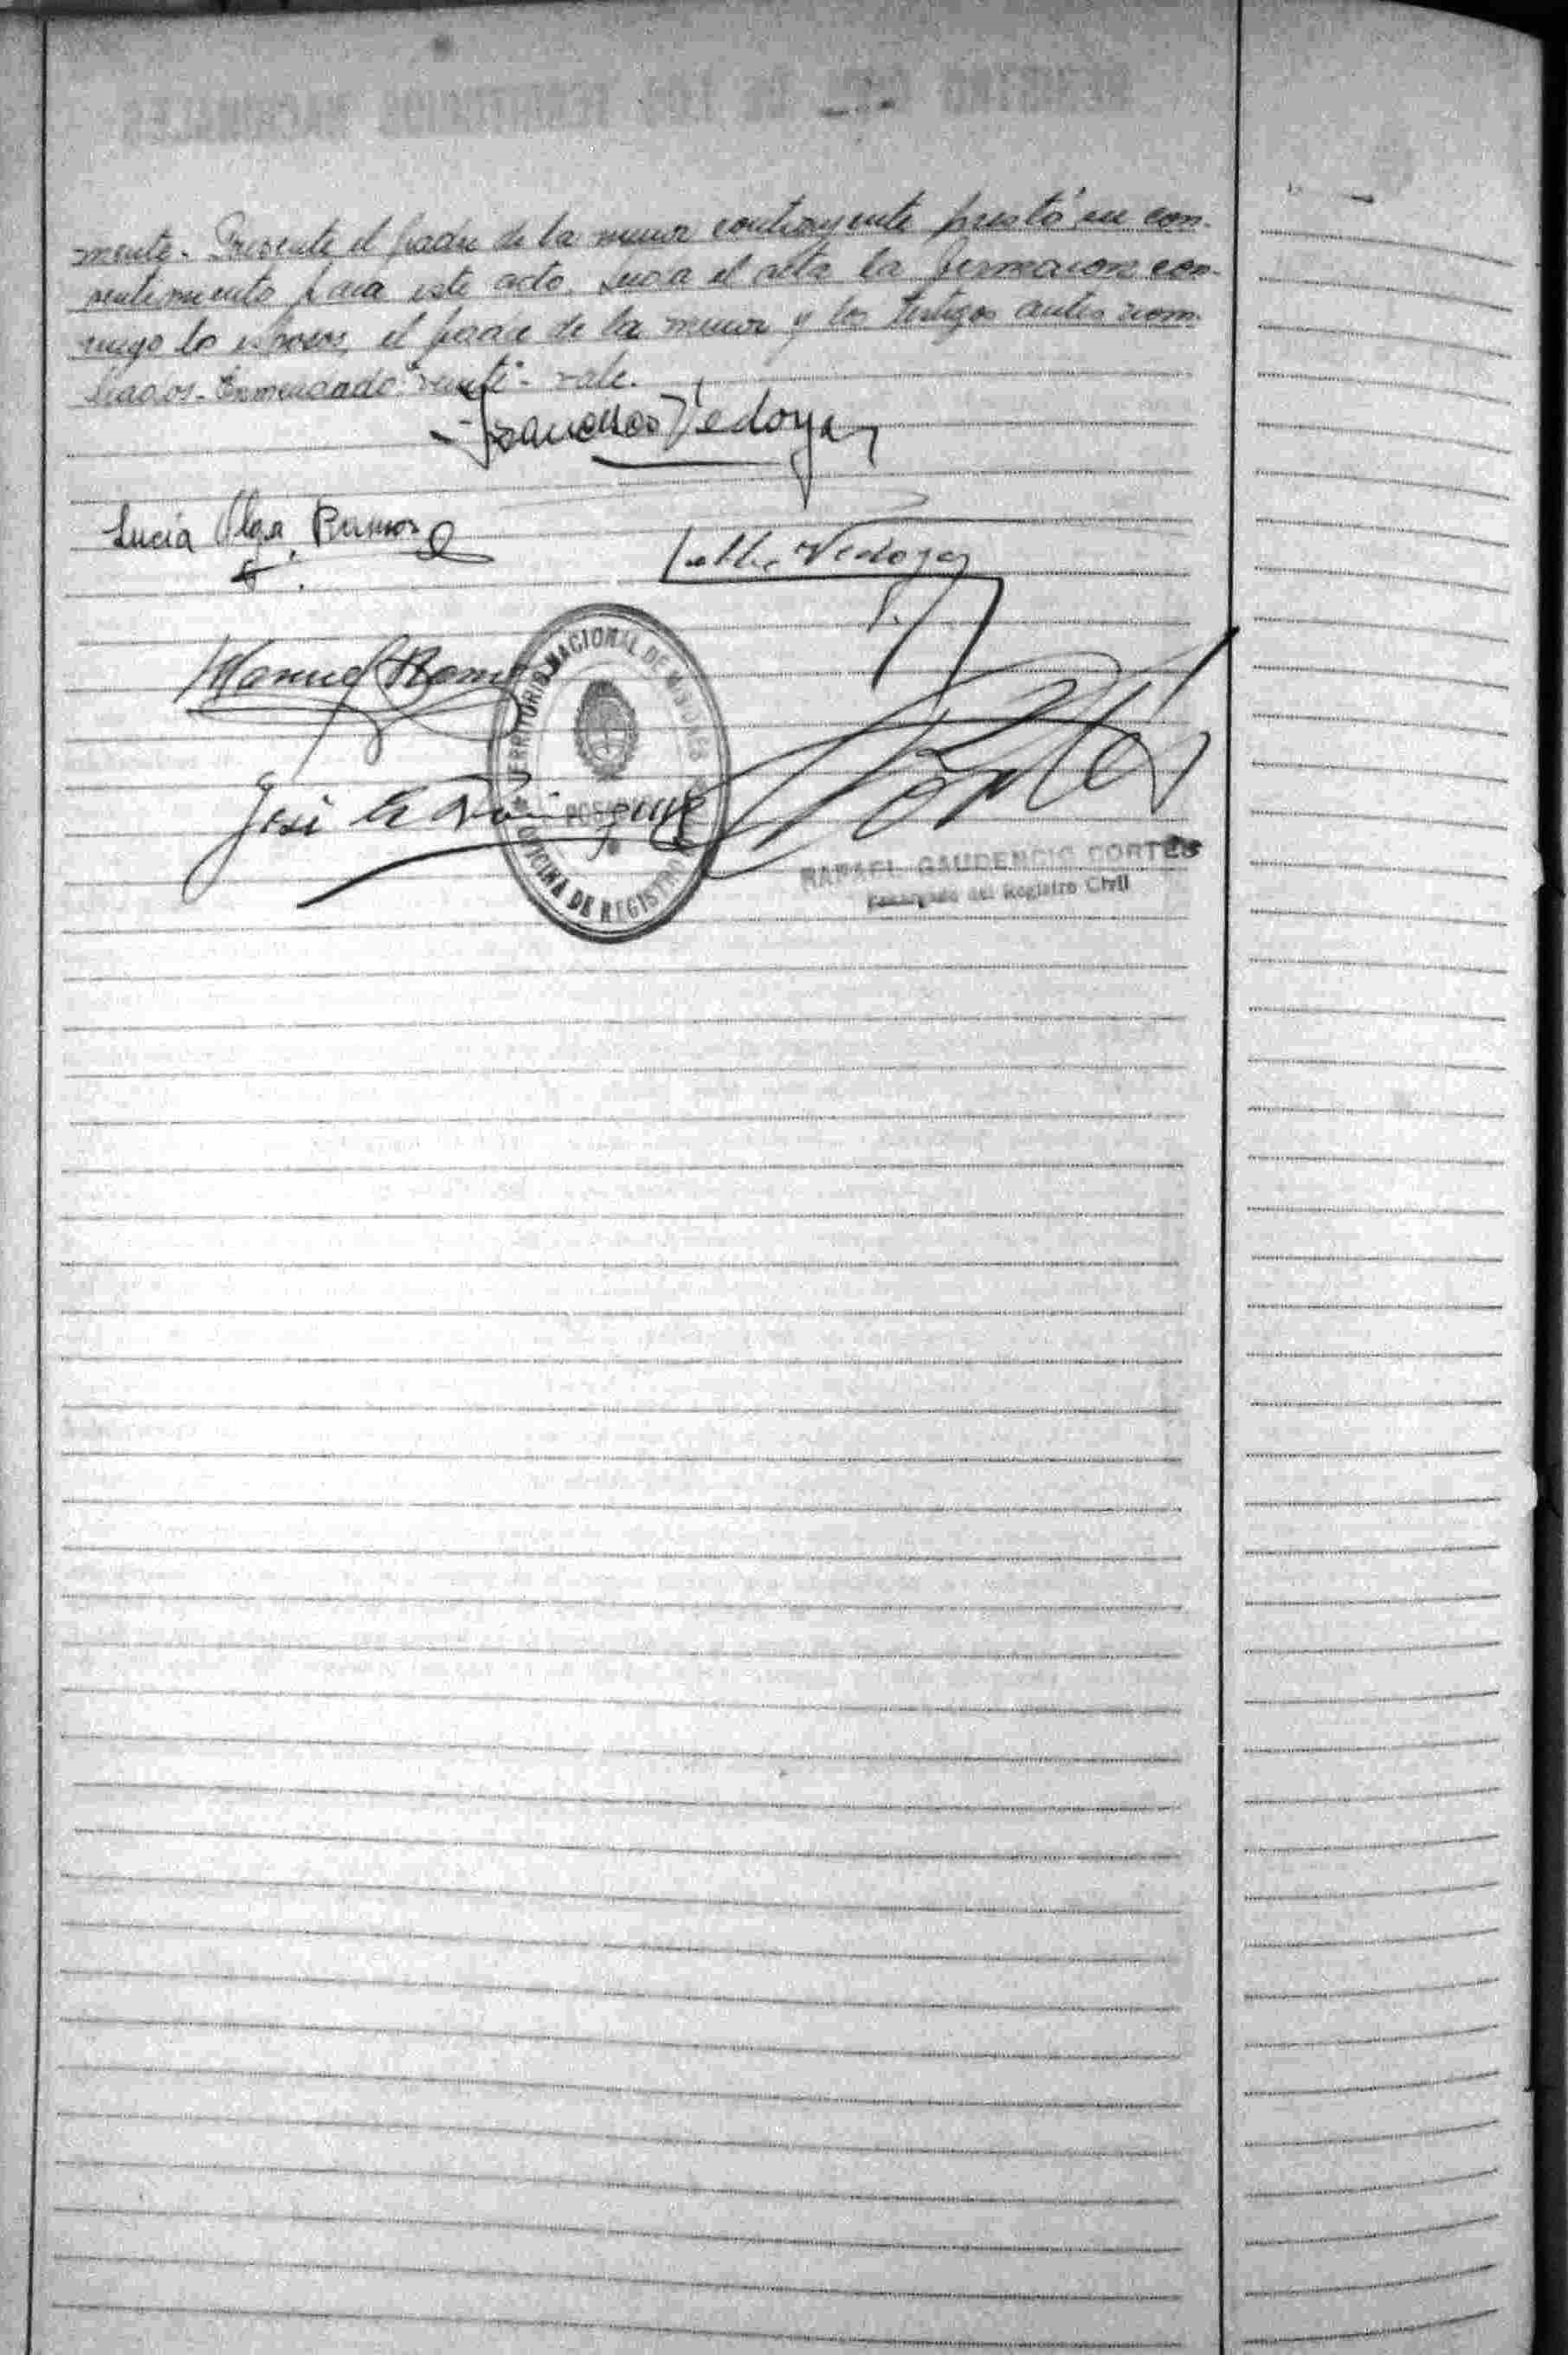 mente.- Presente el padre de la menor contrayente prestó su con-
sentimiento para este acto. Leida el acta la firmaron con-
migo los esposos, el padre de la menor y los testigos antes nom-
brados.- Enmendado: "veinte"- vale.
Francisco Vedoya
Lucia Olga Ramos
Vedoya
Manuel Ramos
TERRITORIO NACIONAL DE MISIONES
OFICINA DE REGISTRO
José
Cortés
RAFAEL GAUDENCIO CORTES
Encargado del Registro Civil